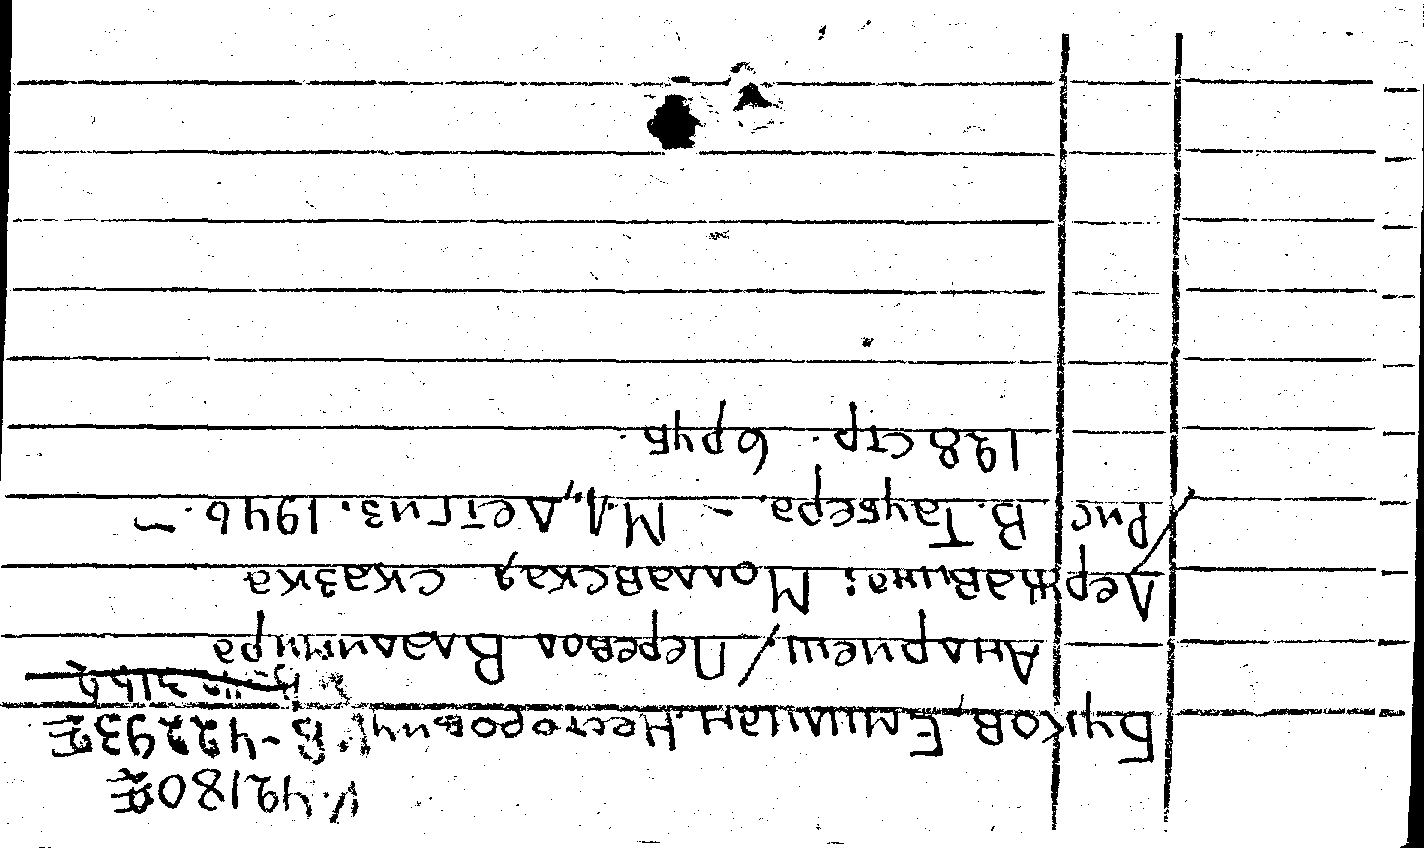 42180
Буков, Емилиан Несторович. В-42293
Андриеш / Перевод Владимира
Державина: Молдавская сказка
/Рис. В. Таубера. – М.Л., Детгиз. 1946. –
128 стр. 6 руб.